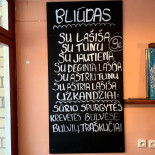 BLIŪDAS
SU LAŠIŠA
SU TUNU
SU JAUTIENA
SU DEGINTA LAŠIŠA
SU AŠTRIU TUNU
SU AŠTRIA LAŠIŠA
UŽKANDŽIAI
SŪRIO SPURGYTĖS
KREVETĖS BULVĖSE
BULVIŲ TRAŠKUČIAI